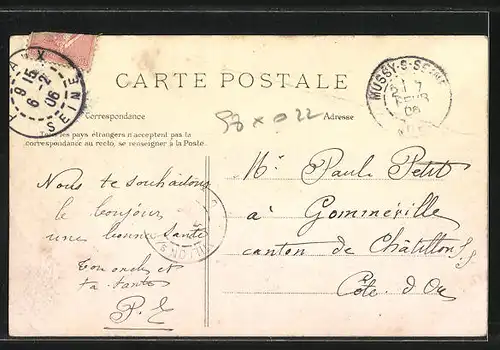 CARTE POSTALE
Correspondance
Adresse
Tous les pays étrangers n'acceptent pas la
correspondance au recto, se renseigner à la Poste.
9 15
6 - 2
06
SEINE
MUSSY-S-SEINE
7
06
AUBE
Mr Paul Petit
à Gomméville
canton de Châtillon s/s
Côte d'Or
Nous te souhaitons
le bonjour
une bonne santé
Ton oncle et
ta tante
P. E